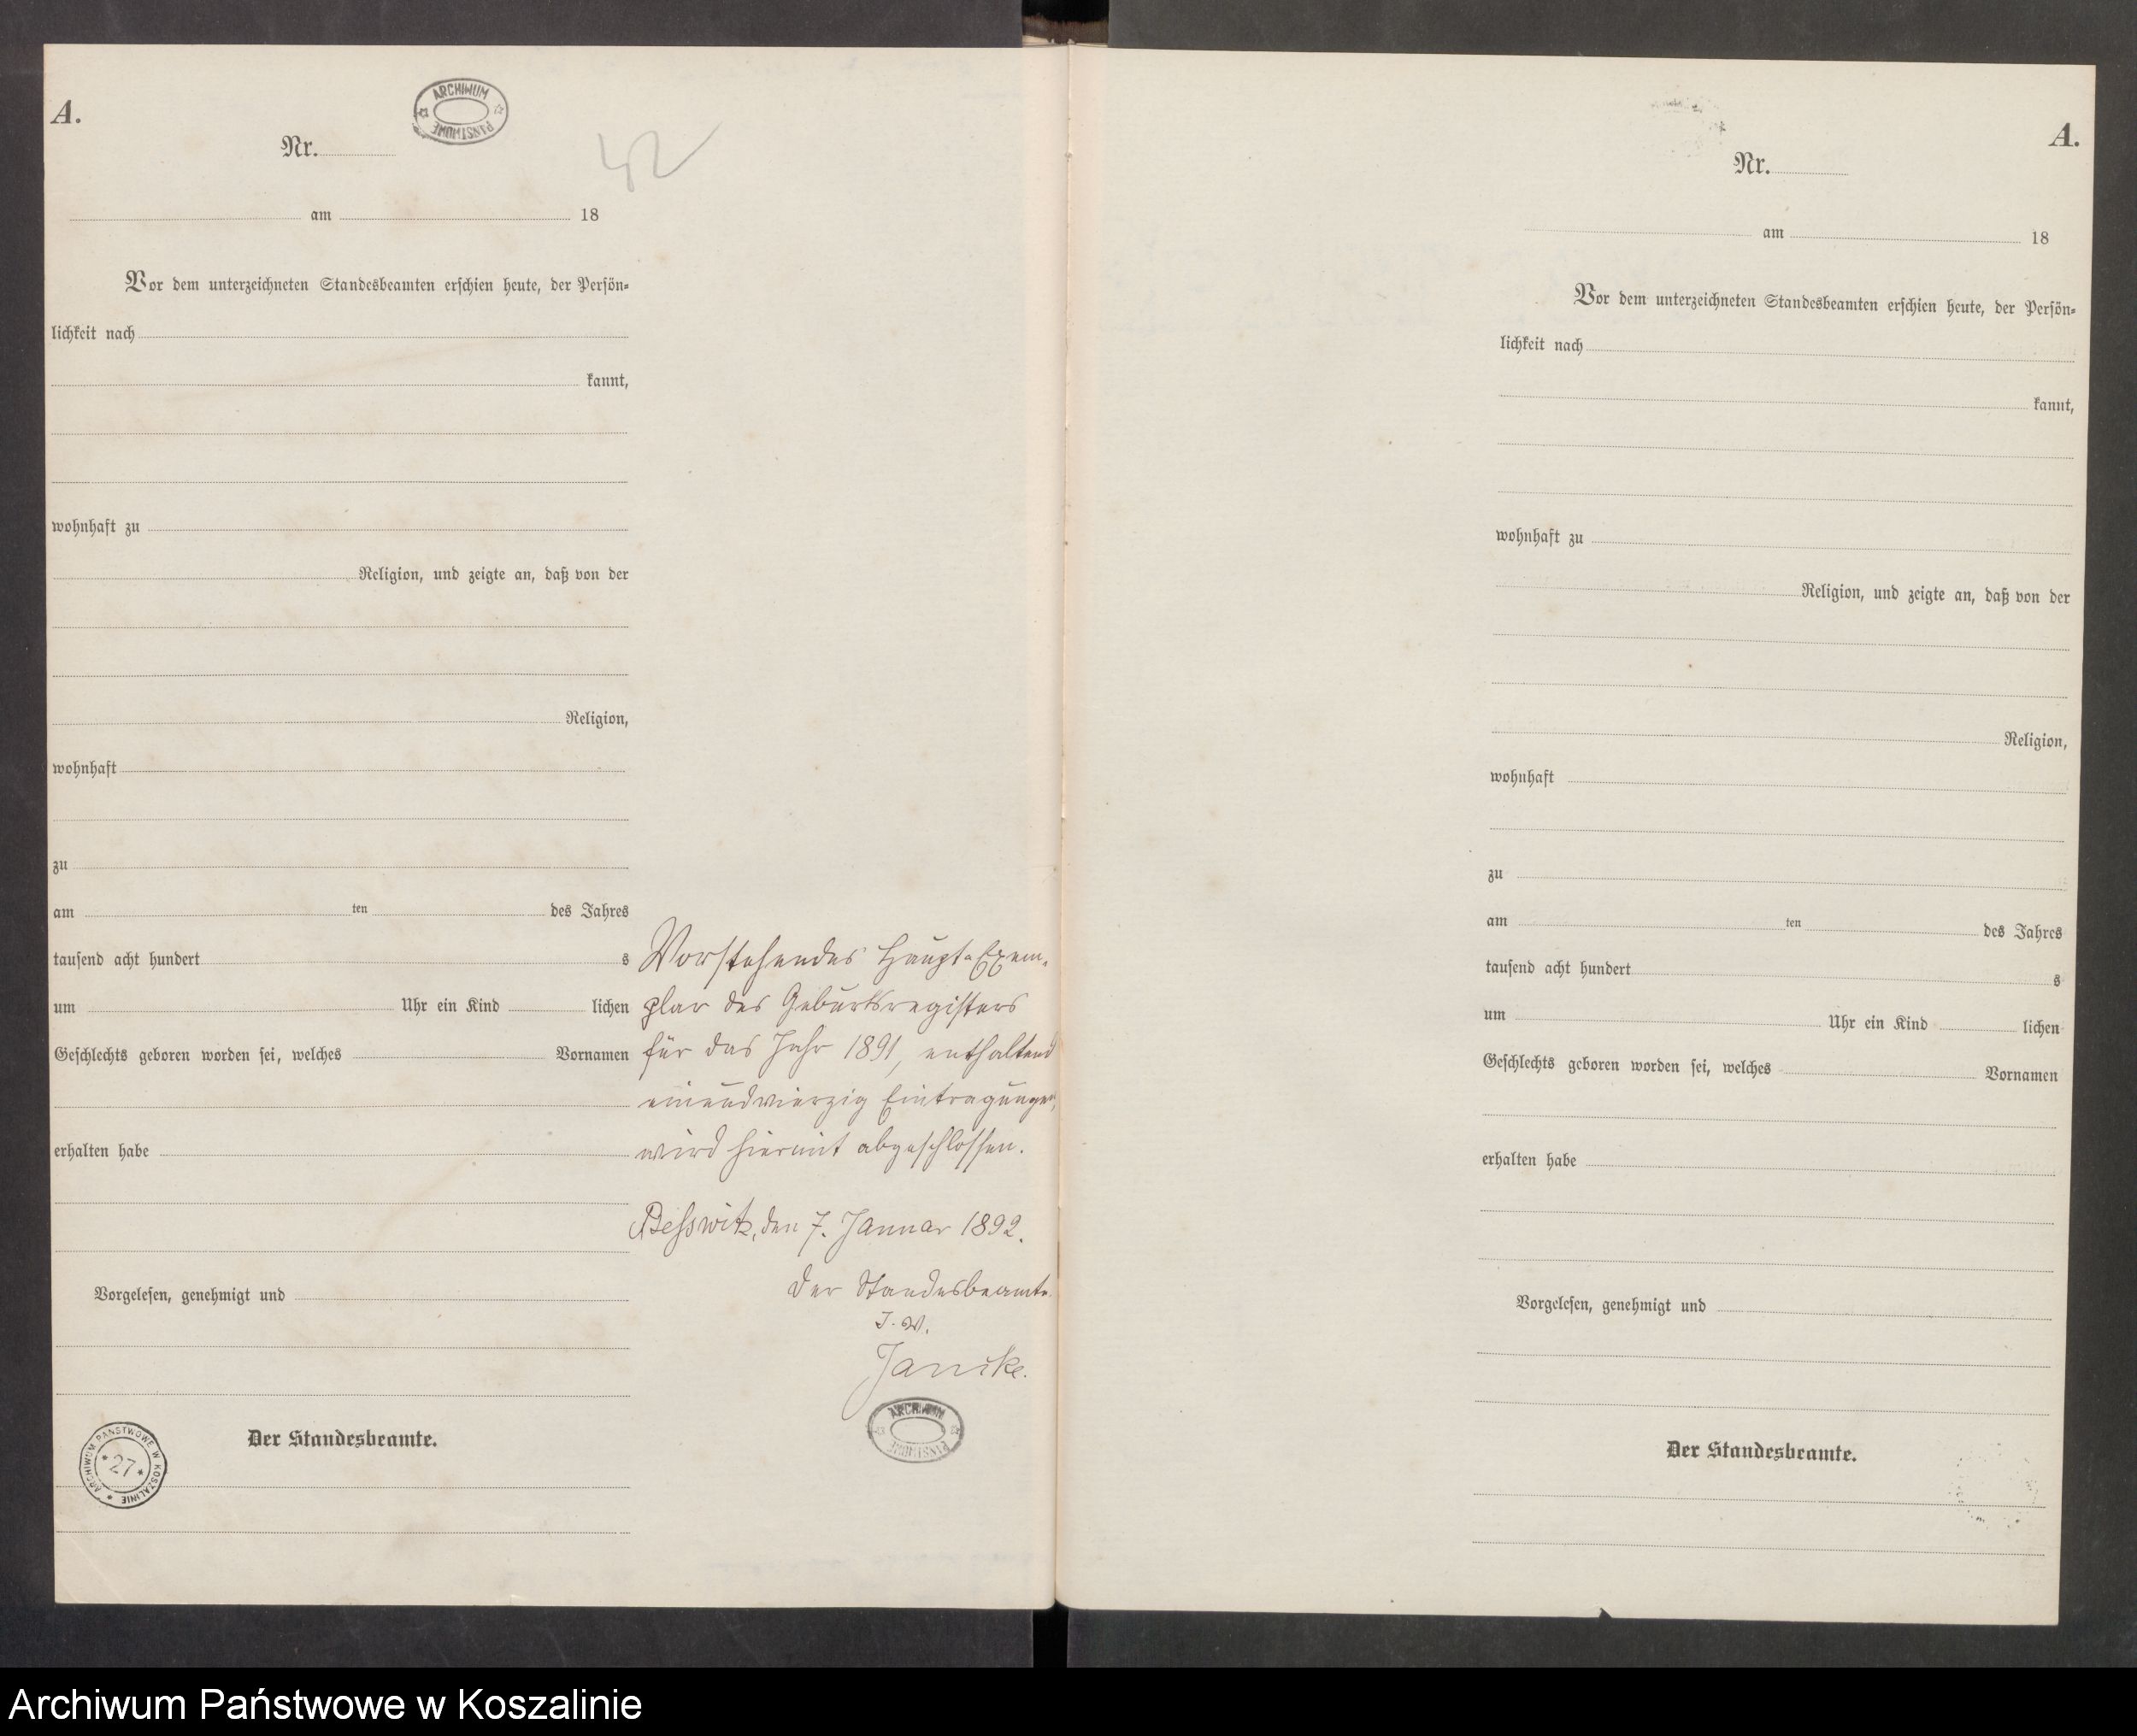 A.
ARCHIWUM PAŃSTWOWE
Nr.
42
am 18
Vor dem unterzeichneten Standesbeamten erschien heute, der Persön-
lichkeit nach
kannt,
wohnhaft zu
Religion, und zeigte an, daß von der
Religion,
wohnhaft
zu
am ten des Jahres
tausend acht hundert s
um Uhr ein Kind lichen
Geschlechts geboren worden sei, welches Vornamen
erhalten habe
Vorgelesen, genehmigt und
Der Standesbeamte.
ARCHIWUM PAŃSTWOWE W KOSZALINIE
*27*
Vorstehendes Haupt-Exem-
plar des Geburtsregisters
für das Jahr 1891, enthaltend
einundvierzig Eintragungen,
wird hiermit abgeschlossen.
Besswitz, den 7. Januar 1892.
Der Standesbeamte
I. V.
Janike.
ARCHIWUM PAŃSTWOWE
A.
Nr.
am 18
Vor dem unterzeichneten Standesbeamten erschien heute, der Persön-
lichkeit nach
kannt,
wohnhaft zu
Religion, und zeigte an, daß von der
Religion,
wohnhaft
zu
am ten des Jahres
tausend acht hundert s
um Uhr ein Kind lichen
Geschlechts geboren worden sei, welches Vornamen
erhalten habe
Vorgelesen, genehmigt und
Der Standesbeamte.
Archiwum Państwowe w Koszalinie